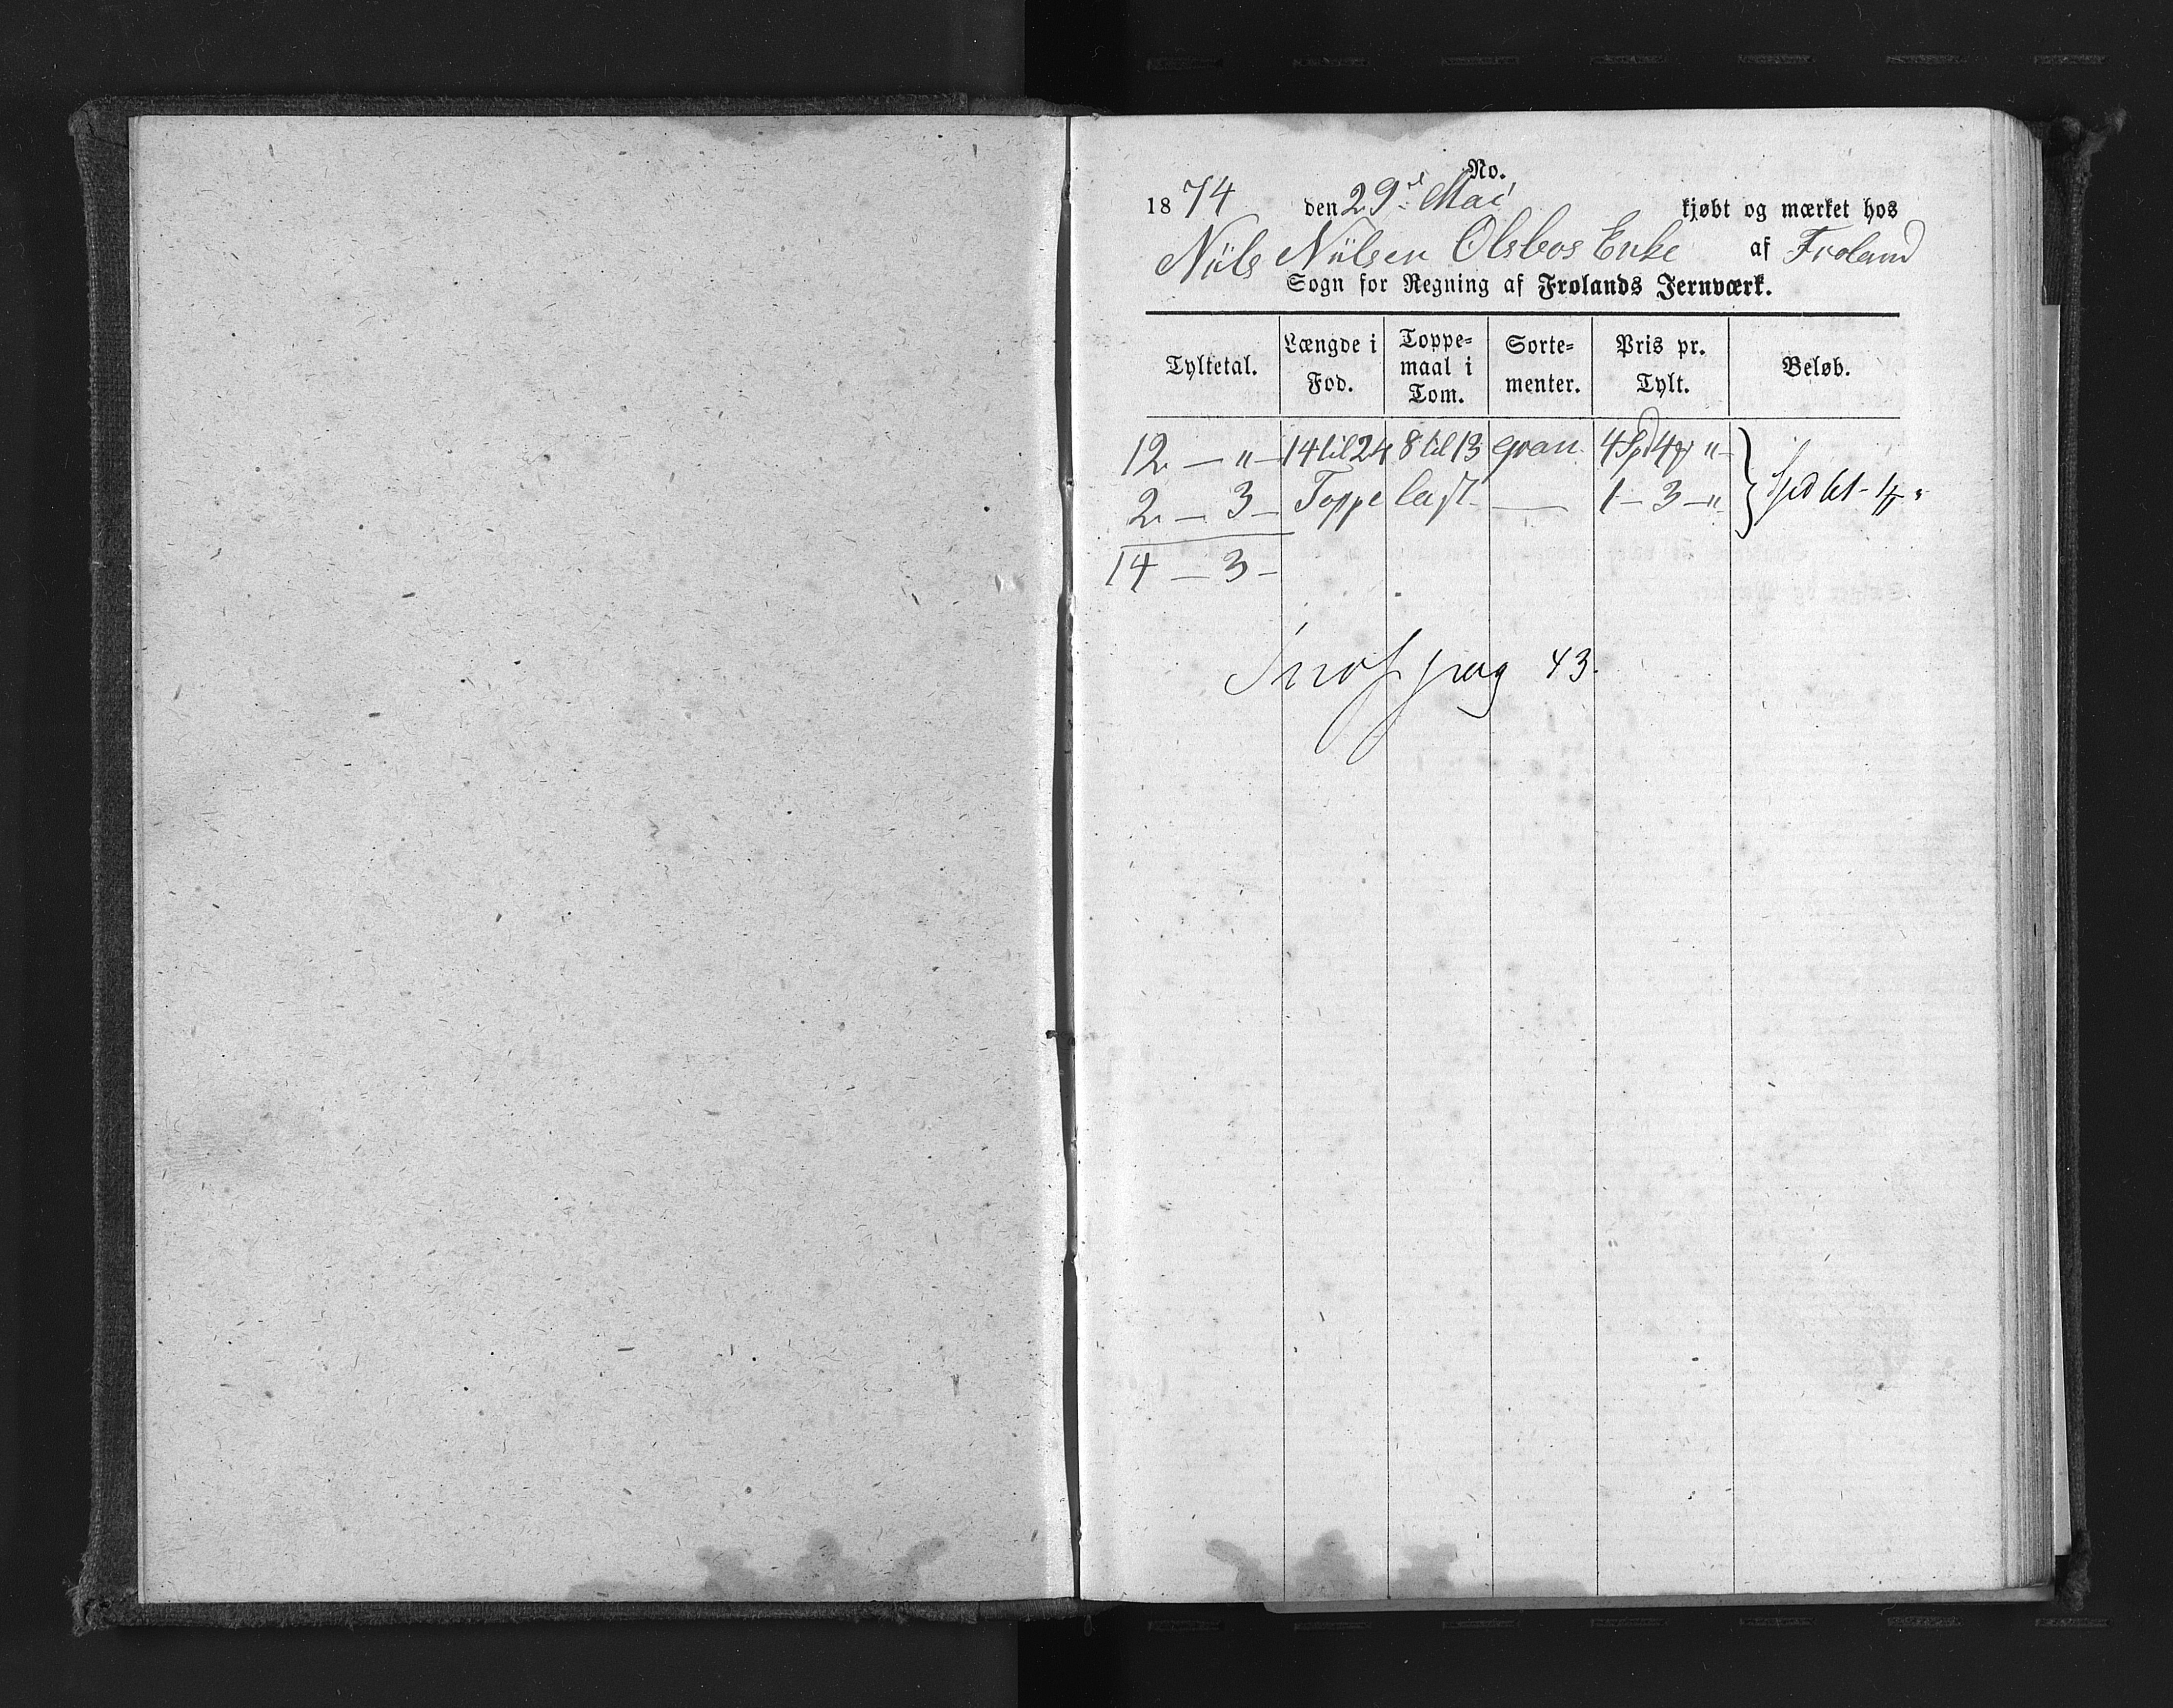 No.
1874 den 29d Mai kjøbt og mærket hos
Niils Niilsen Olsbos Enke af Froland
Sogn for Regning af Frolands Jernværk.
Tyltetal. Længde i Fod. Toppe= maal i Tom. Sorte= menter. Pris pr. Tylt. Beløb.
12 — " — 14 til 24 8 til 13 gran 4 Spd 4 "
2 — 3 — Toppe last — 1 — 3 — "
14 — 3 —
pag 43.